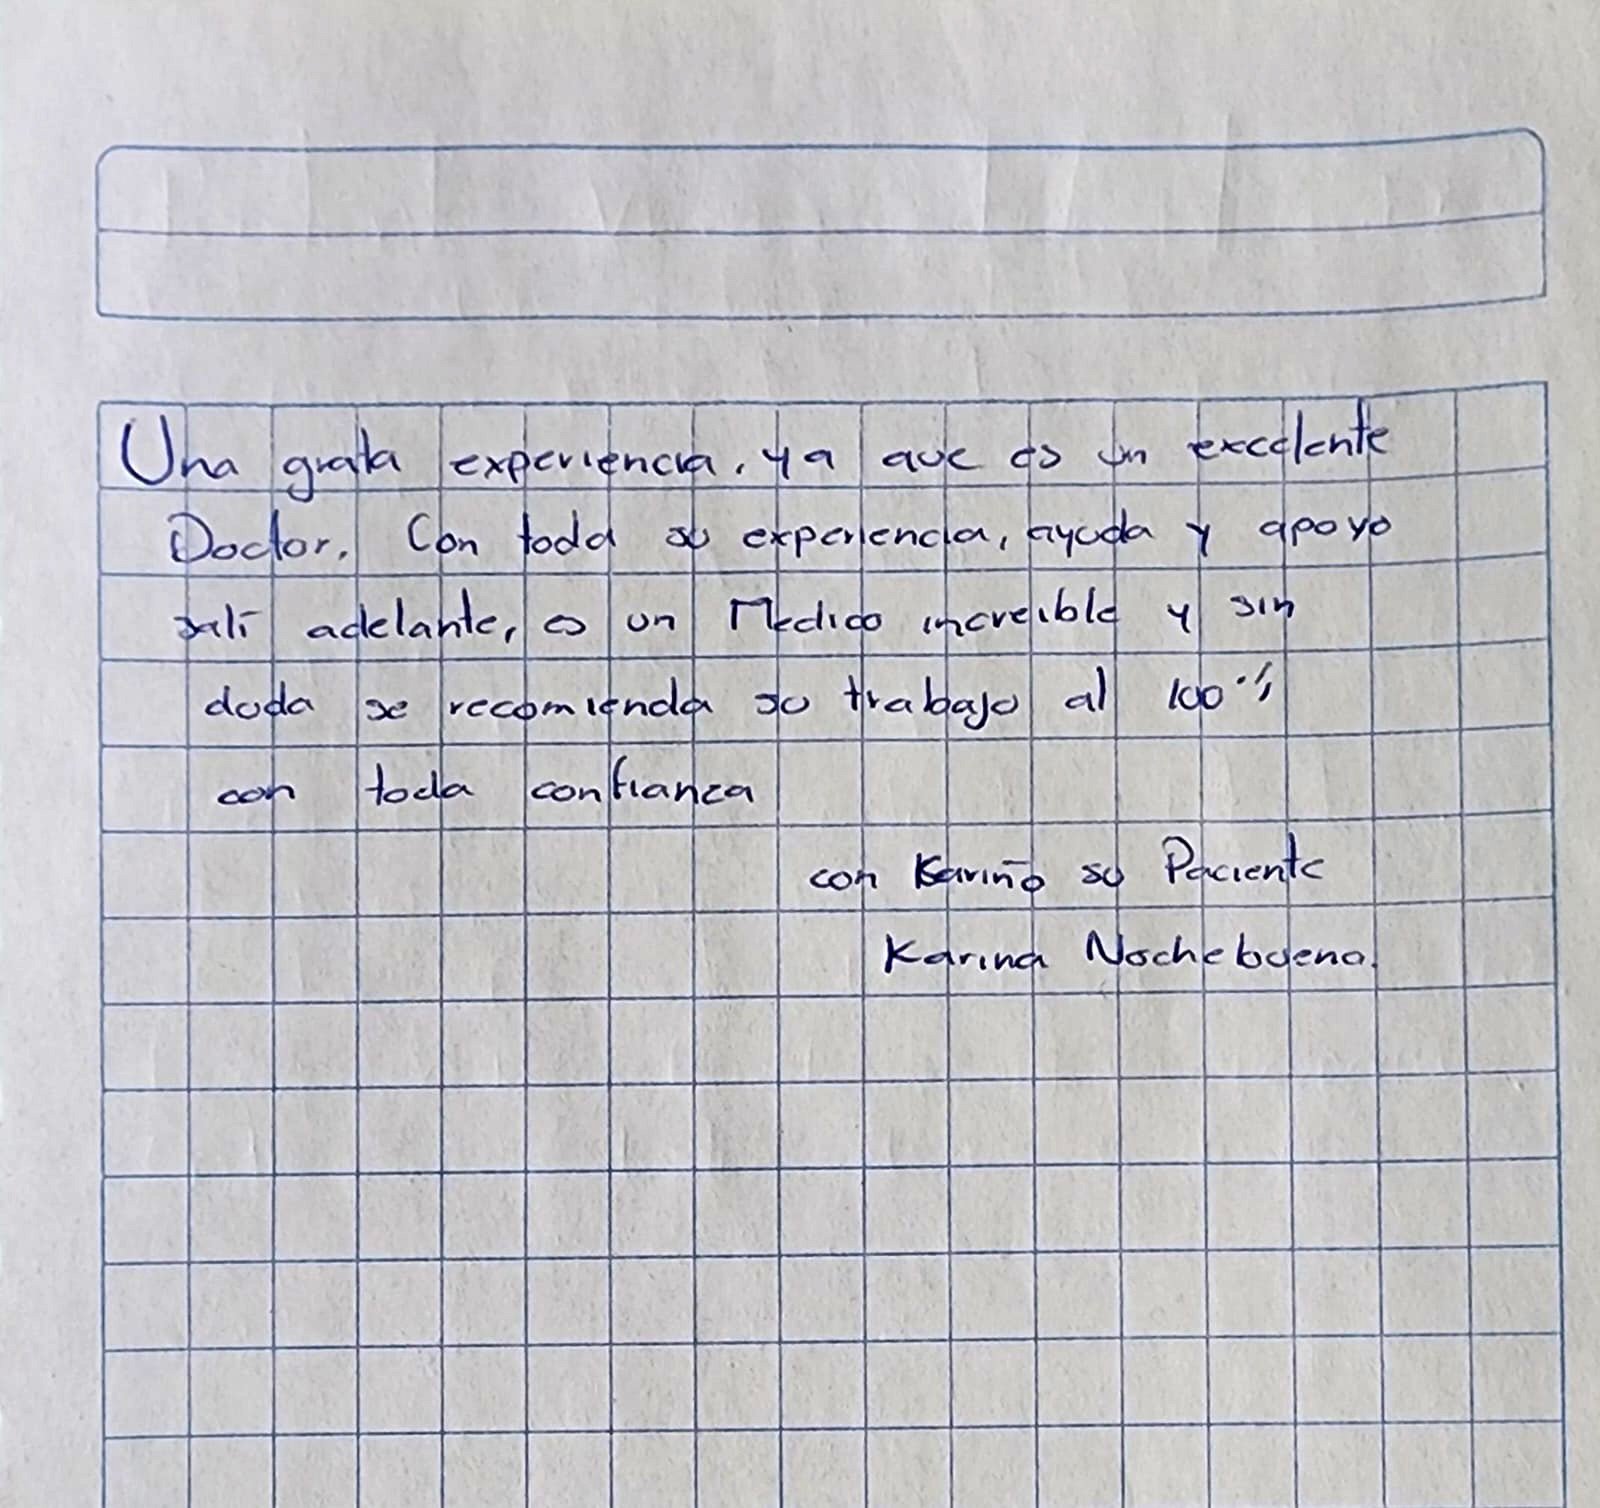 Una grata experiencia, ya que es un excelente
Doctor. Con toda su experiencia, ayuda y apoyo
salí adelante, es un Medico increible y sin
duda se recomienda su trabajo al 100%
con toda confianza
con Kariño su Paciente
Karina Nochebuena.